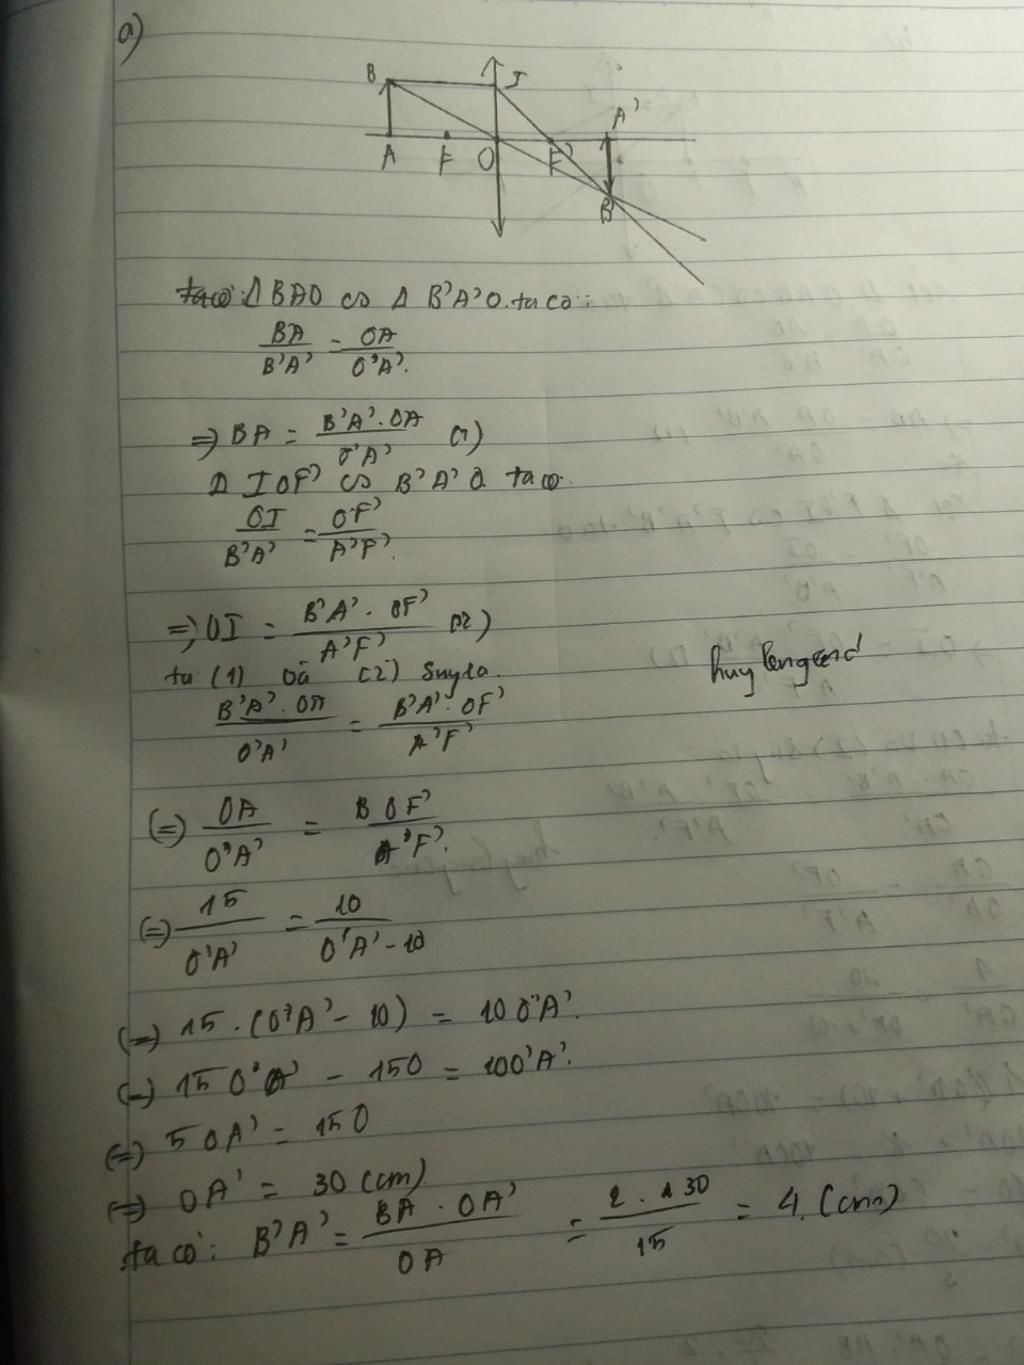 a)
B I
A'
A F O F'
B'
ta có: Δ BAO ∽ Δ B'A'O. ta có:
BA/B'A' = OA/O'A'.
=> BA = B'A'.OA/O'A' (1)
Δ IOF' ∽ B'A'O ta có.
OI/B'A' = OF'/A'F'.
=> OI = B'A'.OF'/A'F' (2)
từ (1) và (2) suy ra.
B'A'.OA/O'A' = B'A'.OF'/A'F'
(=) OA/O'A' = B OF'/A'F'.
(=) 15/O'A' = 10/O'A'-10
(=) 15.(O'A' - 10) = 10O'A'.
(=) 15O'A' - 150 = 10O'A'.
(=) 5OA' = 150
(=) OA' = 30 (cm)
ta có: B'A' = BA.OA'/OA = 2.30/15 = 4. (cm)